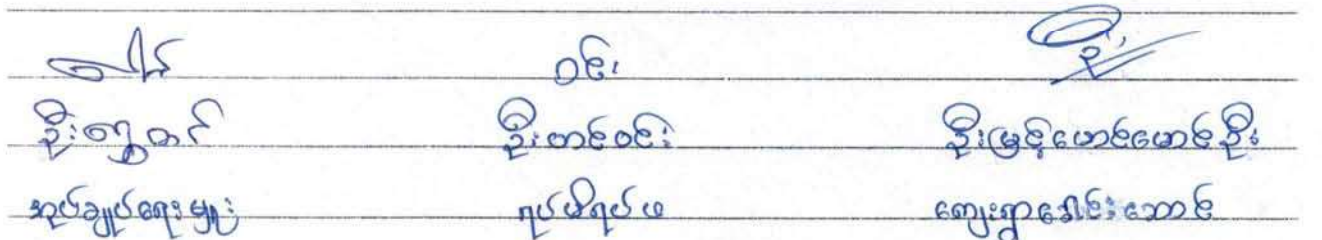 ဝင်း
ဦးတင်ဝင်း ဦးမြင့်မောင်မောင်ဦး
အုပ်ချုပ်ရေးမှူး ရပ်မိရပ်ဖ ကျေးရွာခေါင်းဆောင်